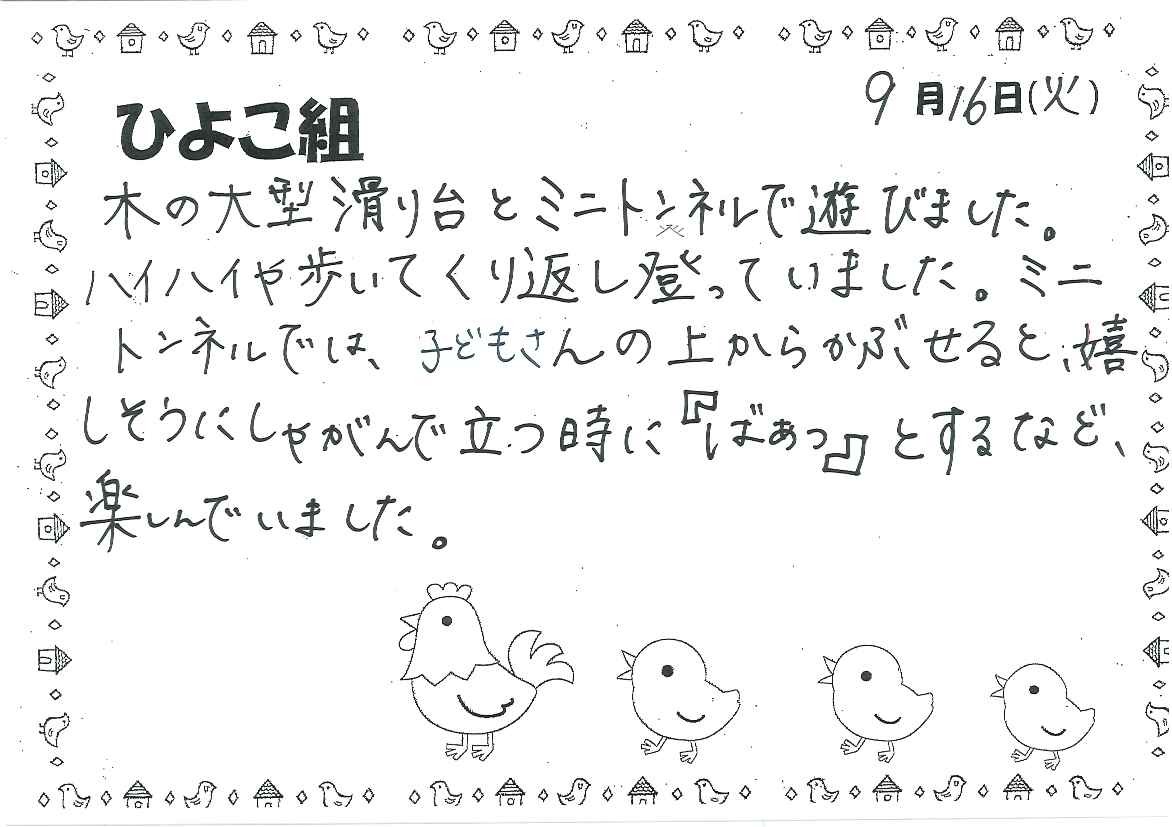 9月16日(火)
ひよこ組
木の大型滑り台とミニトンネルで遊びました。
ハイハイや歩いてくり返し登っていました。ミニ
トンネルでは、子どもさんの上からかぶせると、嬉
しそうにしゃがんで立つ時に『ばぁっ』とするなど、
楽しんでいました。